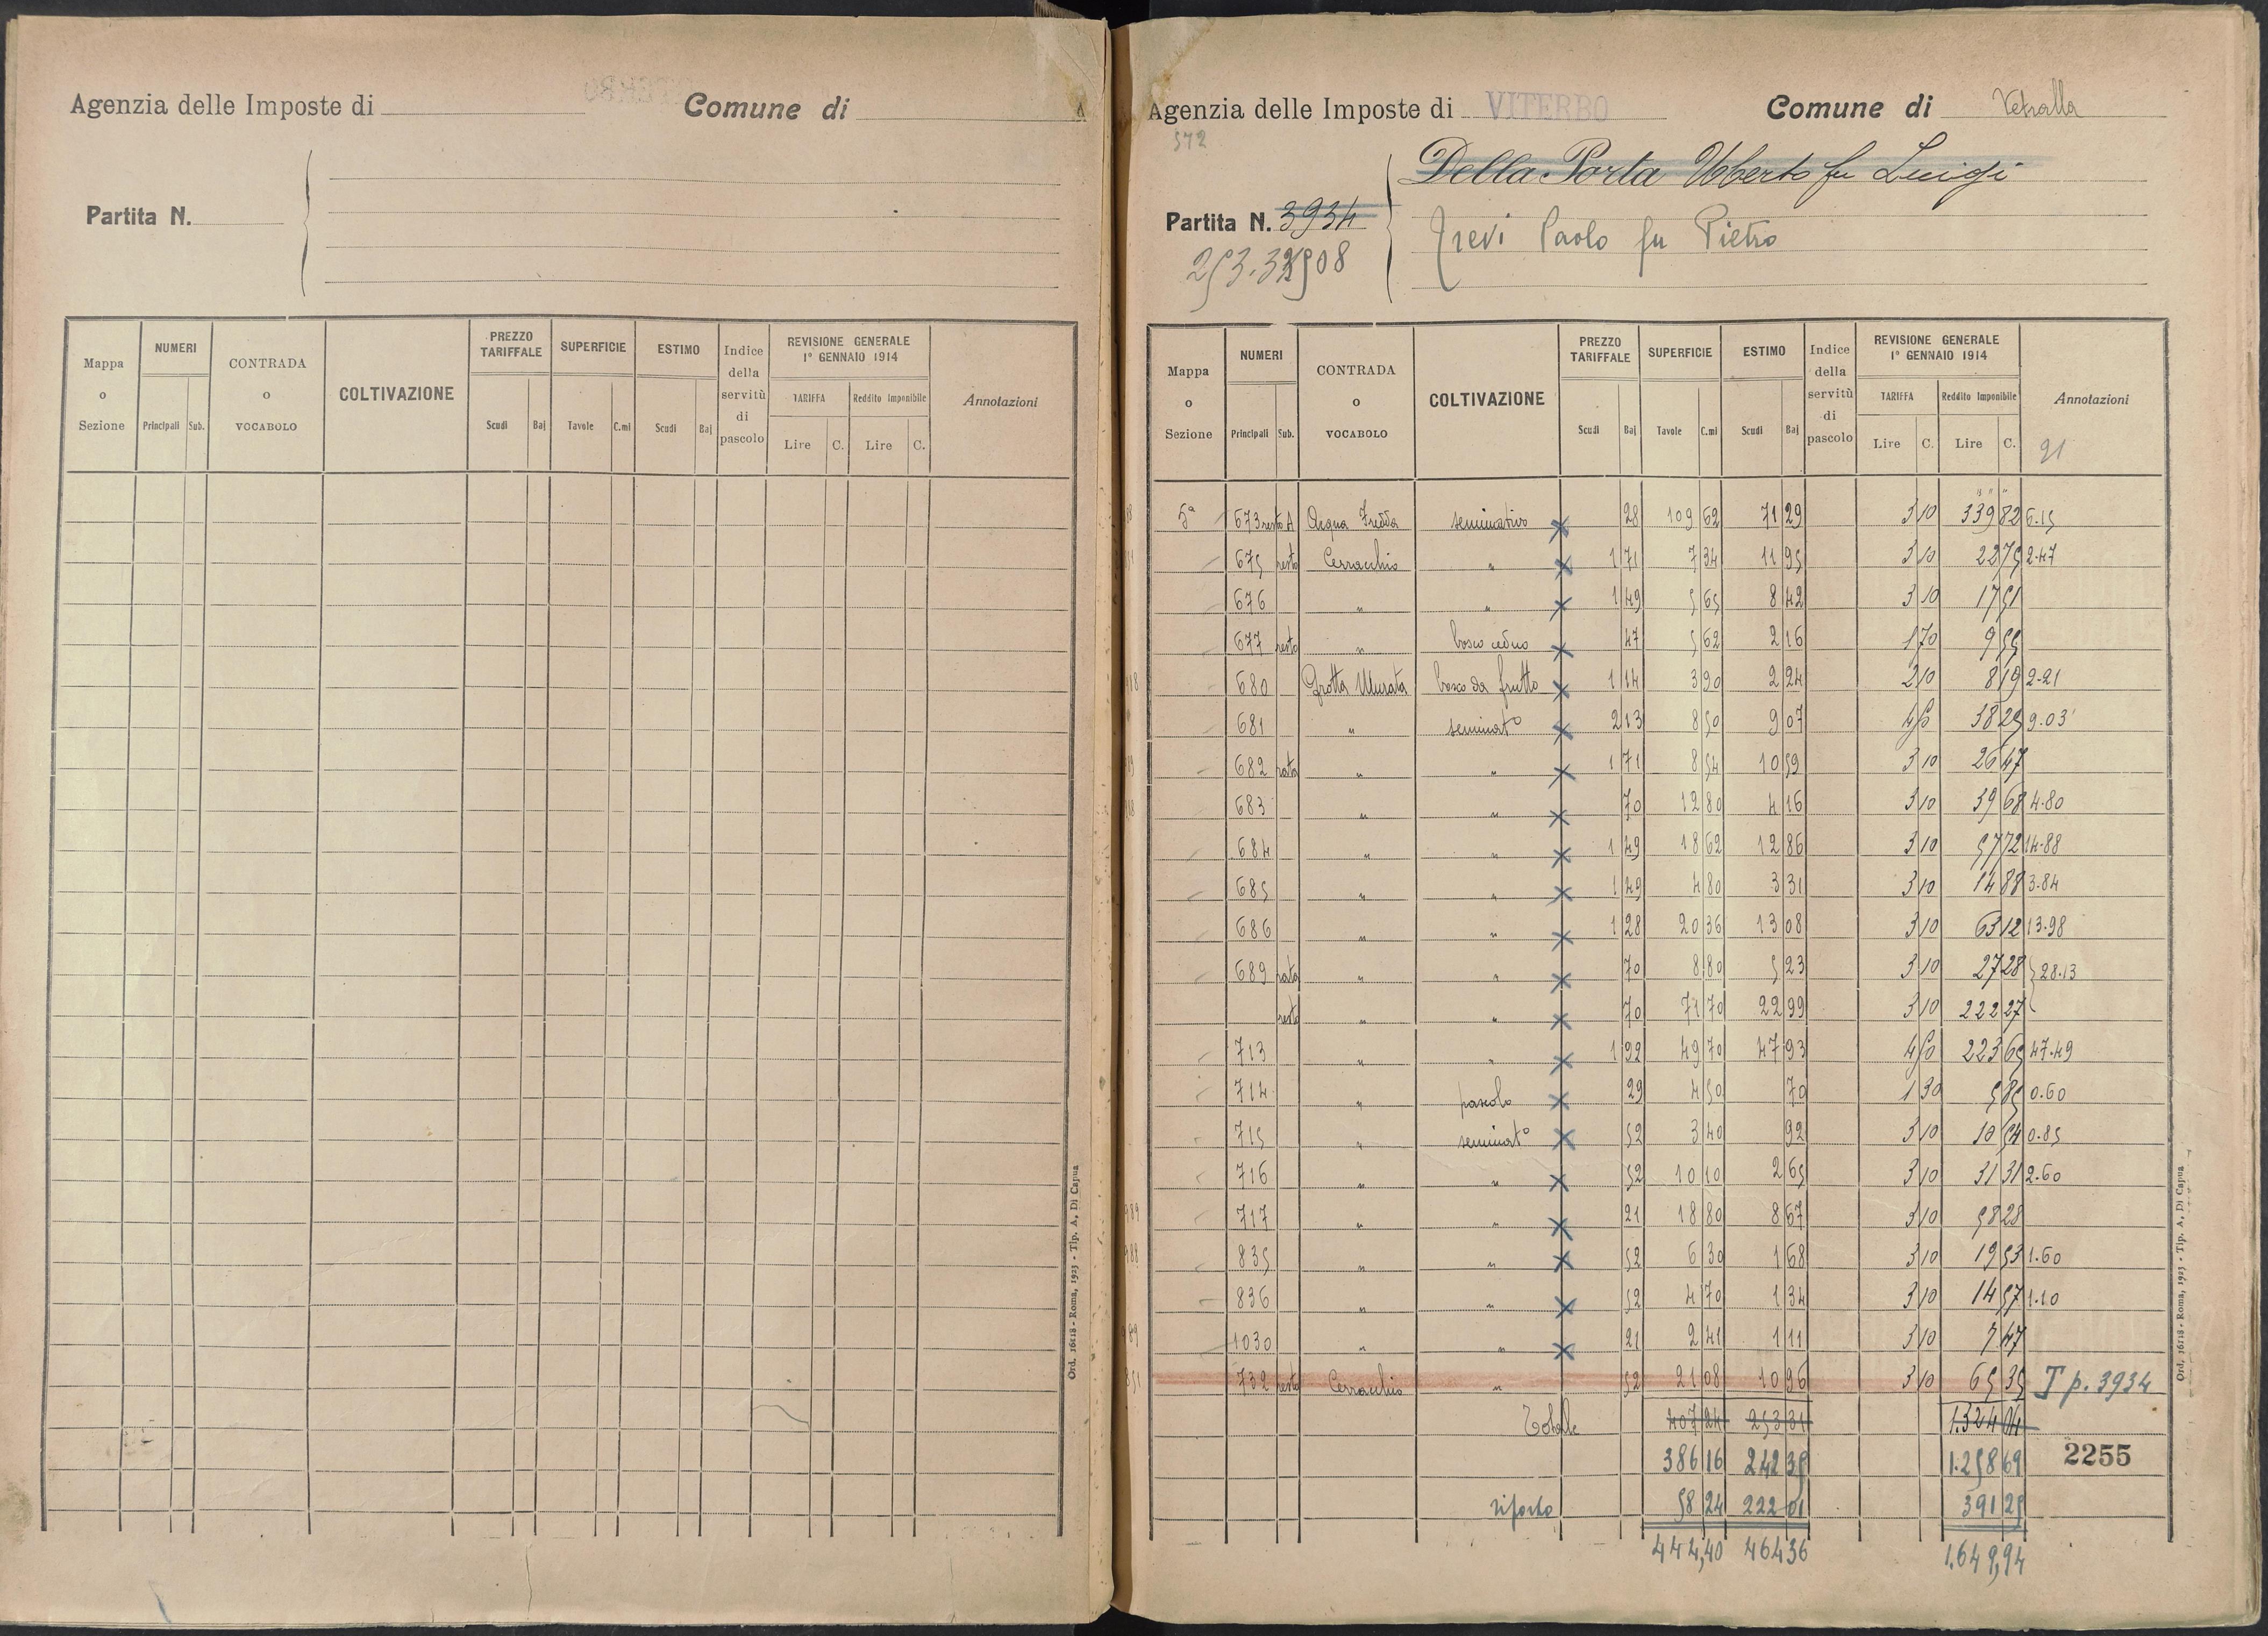 Agenzia delle Imposte di
Comune di
Partita N.
Mappa o Sezione
NUMERI
Principali Sub.
CONTRADA o VOCABOLO
COLTIVAZIONE
PREZZO TARIFFALE
Scudi Baj
SUPERFICIE
Tavole C.mi
ESTIMO
Scudi Baj
Indice della servitù di pascolo
REVISIONE GENERALE 1° GENNAIO 1914
TARIFFA
Lire C.
Reddito Imponibile
Lire C.
Annotazioni
Ord. 16118 - Roma, 1923 - Tip. A. Di Capua
Agenzia delle Imposte di VITERBO
Comune di Vetralla
572
Della Porta Uberto fu Luigi
Partita N. 3934
Trevi Paolo fu Pietro
Mappa o Sezione
NUMERI
Principali Sub.
CONTRADA o VOCABOLO
COLTIVAZIONE
PREZZO TARIFFALE
Scudi Baj
SUPERFICIE
Tavole C.mi
ESTIMO
Scudi Baj
Indice della servitù di pascolo
REVISIONE GENERALE 1° GENNAIO 1914
TARIFFA
Lire C.
Reddito Imponibile
Lire C.
Annotazioni
21
5a 673 resto A Acqua Fredda seminativo 28 109 62 71 29 3 10 339 82 6.15
675 resto Cerracchio " 1 71 7 34 11 95 3 10 22 75 2.47
676 " " 1 49 5 65 8 42 3 10 17 51
677 resto " bosco ceduo 47 5 62 2 16 1 70 9 55
680 Grotta Murata bosco da frutto 1 14 3 90 2 24 2 10 8 19 2.21
681 " seminato 2 13 8 50 9 07 4 50 38 25 9.03
682 rata " " 1 71 8 54 10 59 3 10 26 47
683 " " 70 12 80 4 16 3 10 39 68 4.80
684 " " 1 49 18 62 12 86 3 10 57 72 14.88
685 " " 1 49 4 80 3 31 3 10 14 88 3.84
686 " " 1 28 20 36 13 08 3 10 63 12 13.98
689 rata " " 70 8 80 5 23 3 10 27 28 28.13
resto " " 70 71 70 22 99 3 10 222 27
713 " " 1 92 49 70 47 93 4 50 223 65 47.49
714 " pascolo 29 4 50 70 1 30 5 85 0.60
715 " seminato 52 3 40 92 3 10 10 54 0.85
716 " " 52 10 10 2 65 3 10 31 31 2.60
717 " " 21 18 80 8 67 3 10 58 28
835 " " 52 6 30 1 68 3 10 19 53 1.60
836 " " 52 4 70 1 34 3 10 14 57 1.10
1030 " " 21 2 41 1 11 3 10 7 47
732 resto Cerracchio " 52 21 08 10 96 3 10 65 35 T p. 3934
Totale 407 24 253 31 1.324 04
386 16 242 35 1.258 69
2255
riporto 58 24 222 01 391 25
444,40 464 36 1.649,94
Ord. 16118 - Roma, 1923 - Tip. A. Di Capua